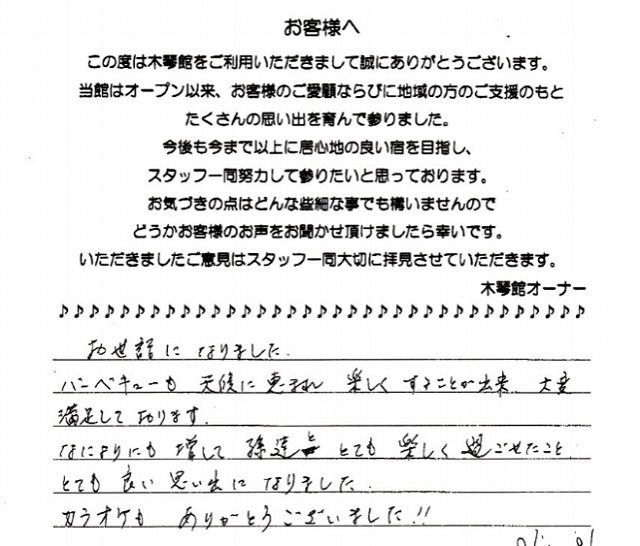 お客様へ
この度は木琴館をご利用いただきまして誠にありがとうございます。
当館はオープン以来、お客様のご愛顧ならびに地域の方のご支援のもと
たくさんの思い出を育んで参りました。
今後も今まで以上に居心地の良い宿を目指し、
スタッフ一同努力して参りたいと思っております。
お気づきの点はどんな些細な事でも構いませんので
どうかお客様のお声をお聞かせ頂けましたら幸いです。
いただきましたご意見はスタッフ一同大切に拝見させていただきます。
木琴館オーナー
♪♪♪♪♪♪♪♪♪♪♪♪♪♪♪♪♪♪♪♪♪♪♪♪♪♪♪♪♪♪♪♪♪♪♪
お世話になりました.
バーベキューも 天候に恵まれ 楽しくすることが出来 大変
満足しております.
なによりにも増して 孫達と とても楽しく過ごせたこと
とても良い思い出になりました.
カラオケも ありがとうございました!!